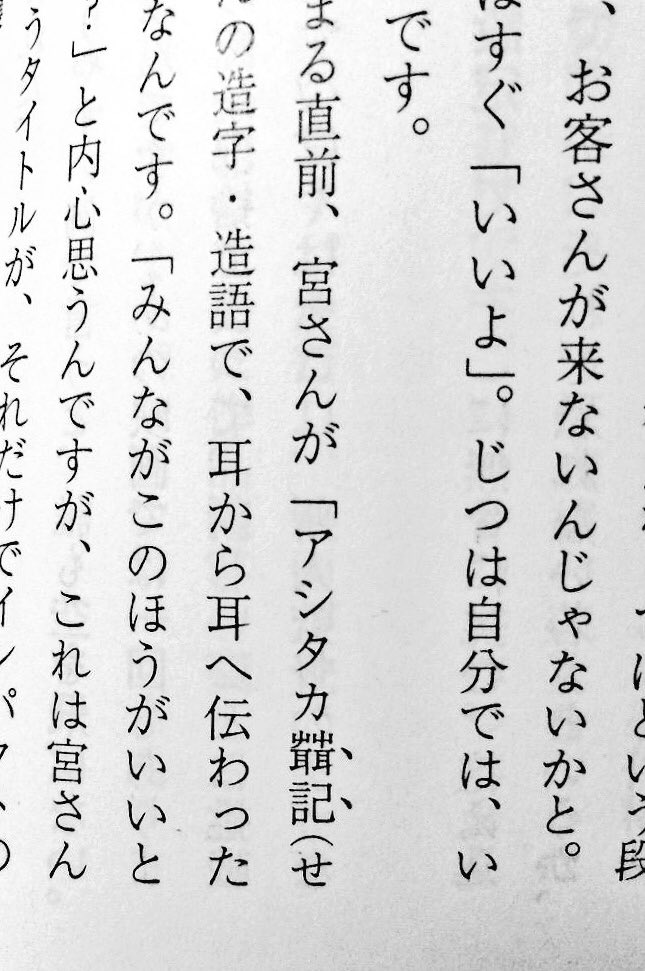 という段
、お客さんが来ないんじゃないかと。
はすぐ「いいよ」。じつは自分では、い
です。
まる直前、宮さんが「アシタカ𦻙記（せ
んの造字・造語で、耳から耳へ伝わった
なんです。「みんながこのほうがいいと
？」と内心思うんですが、これは宮さん
うタイトルが、それだけでインパク